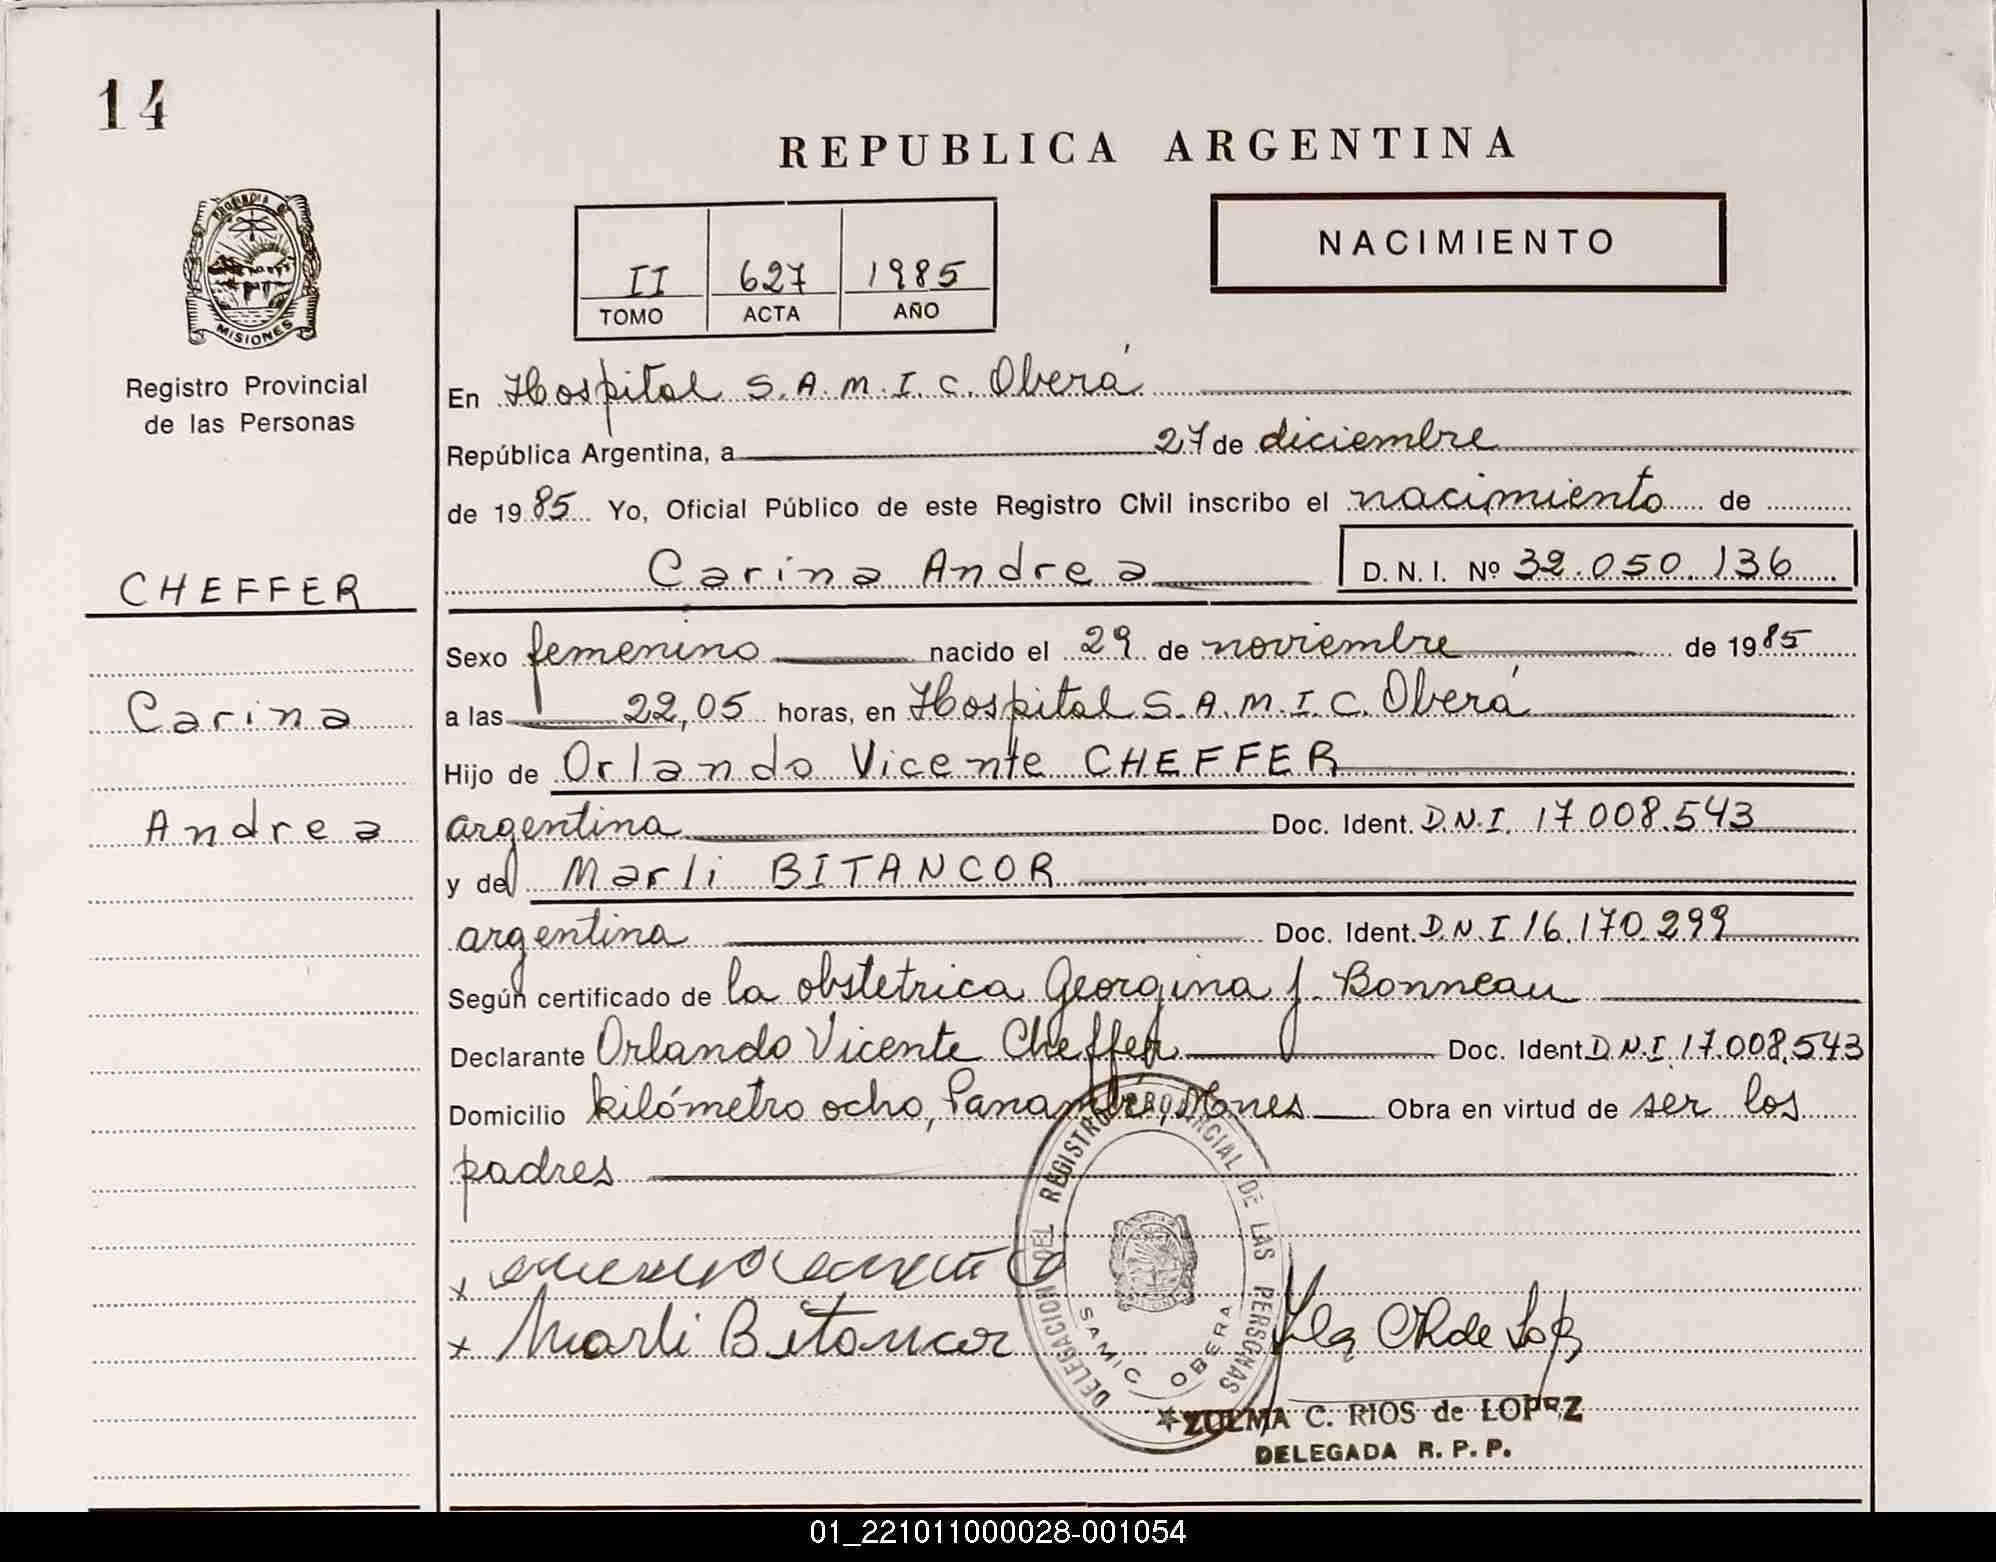 14
REPUBLICA ARGENTINA
NACIMIENTO
PROVINCIA DE
MISIONES
II 627 1985
TOMO ACTA AÑO
Registro Provincial
de las Personas
En Hospital S.A.M.I.C. Oberá
República Argentina, a 27 de diciembre
de 1985 Yo, Oficial Público de este Registro Civil inscribo el nacimiento de
Carina Andrea D.N.I. Nº 32.050.136
CHEFFER
Carina
Andrea
Sexo femenino nacido el 29 de noviembre de 1985
a las 22,05 horas, en Hospital S.A.M.I.C. Oberá
Hijo de Orlando Vicente CHEFFER
argentina Doc. Ident. D.N.I. 17.008.543
y de Marli BITANCOR
argentina Doc. Ident. D.N.I 16.170.299
Según certificado de la obstetrica Georgina J. Bonneau
Declarante Orlando Vicente Cheffer Doc. Ident D.N.I. 17.008.543
Domicilio kilómetro ocho, Panambí, Mnes Obra en virtud de ser los
padres
x
x Marli Bitancor
DELEGACION DEL REGISTRO PROVINCIAL DE LAS PERSONAS
SAMIC OBERA
ZULMA C. RIOS de LOPEZ
DELEGADA R.P.P.
01_221011000028-001054